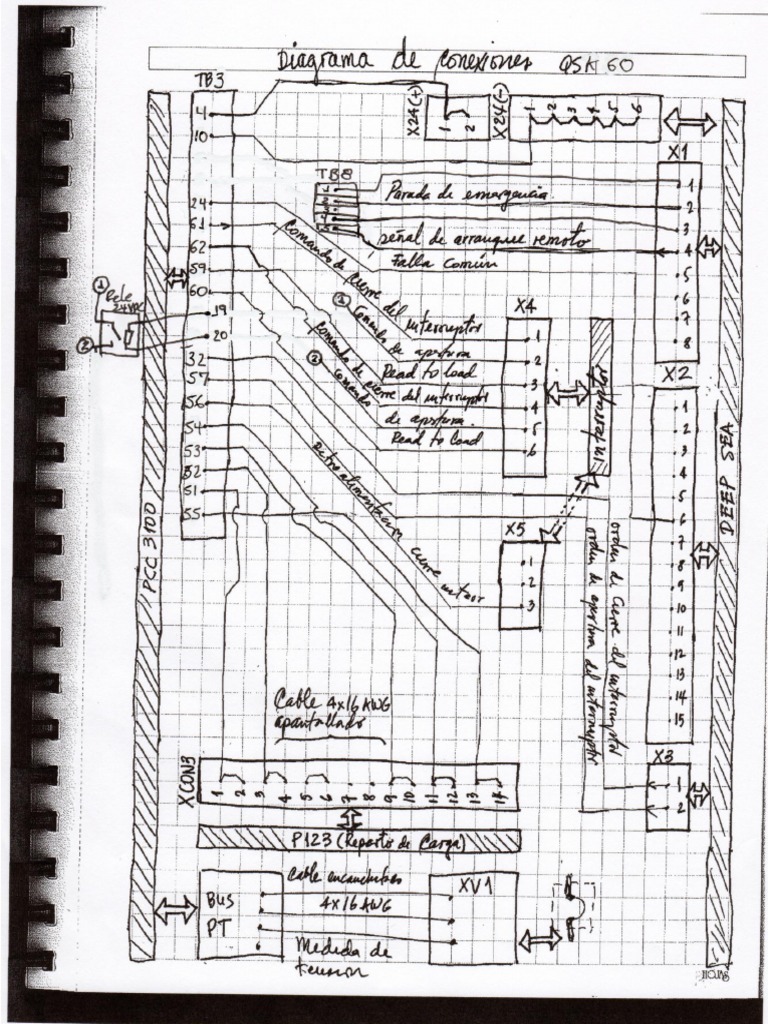 Diagrama de Conexiones QSK 60
TB3
4
10
24
61
62
59
60
19
20
32
57
56
54
53
52
51
55
X24(+)
1 2
X24(-)
1 2 3 4 5 6
X1
1
2
3
4
5
6
7
8
TB8
Parada de emergencia
señal de arranque remoto
Falla Común
Comando de cierre del interruptor
① Comando de apertura
Read to load
② Comando de cierre del interruptor
comando de apertura.
Read to load
①
Rele
24VDC
②
X4
1
2
3
4
5
6
interruptor
X2
1
2
3
4
5
6
7
8
9
10
11
12
13
14
15
X5
1
2
3
Retroalimentacion cierre
orden de cierre del interruptor
orden de apertura del interruptor
PCC 3100
DEEP SEA
Cable 4x16 AWG
apantallado
X3
1
2
XCON3
1 2 3 4 5 6 7 8 9 10 11 12 13 14
P123 (Reparto de Carga)
BUS
PT
Cable
4x16 AWG
Medida de
tension
XV1